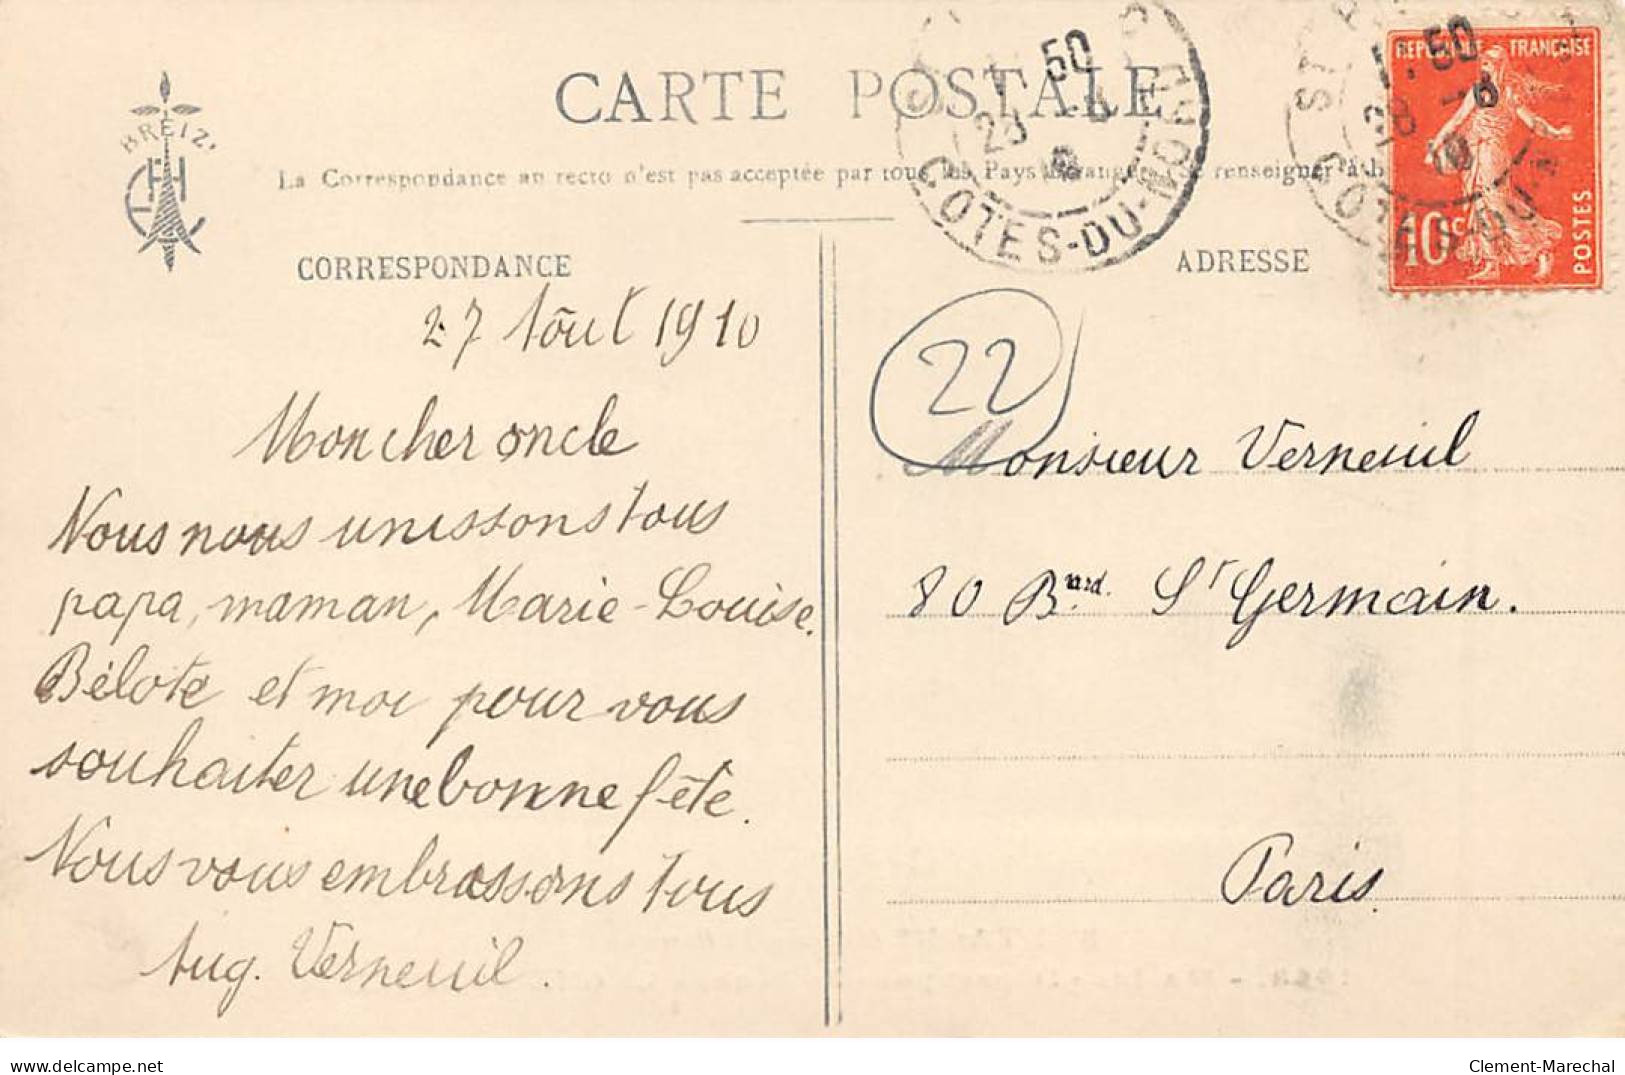 CARTE POSTALE
BREIZ
La Correspondance au recto n'est pas acceptée par tous les Pays Etrangers (Se renseigner
CORRESPONDANCE
27 Aôut 1910
Mon cher oncle
Nous nous unissons tous
papa, maman, Marie-Louise.
Bélote et moi pour vous
souhaiter une bonne fête.
Nous vous embrassons tous
Aug. Verneuil.
ADRESSE
22
Monsieur Verneuil
80 Bard. St Germain.
Paris.
REPUBLIQUE FRANÇAISE
10c
POSTES
50
COTES-DU-NORD
ST
50
28
10
COTES-DU-N
delcampe.net
Clement-Marechal